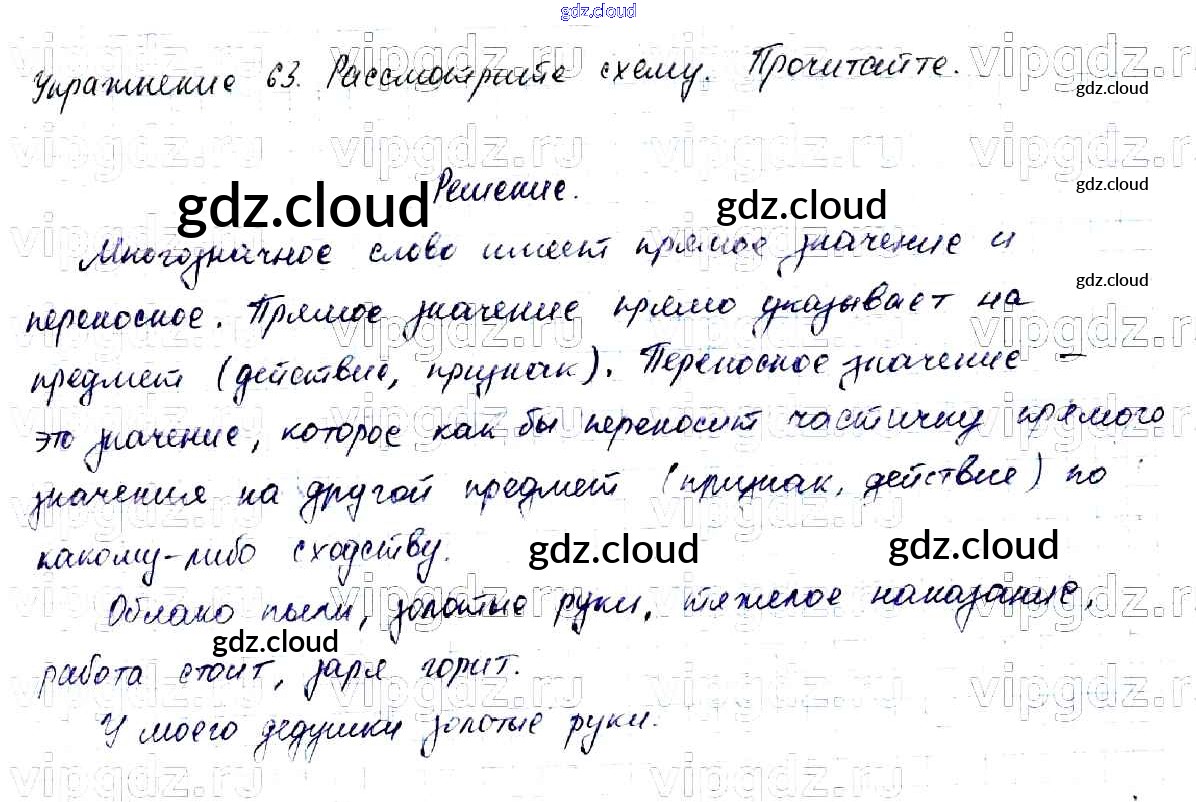 gdz.cloud
Упражнение 63. Рассмотрите схему. Прочитайте.
gdz.cloud
vipgdz.ru vipgdz.ru vipgdz.ru vipgdz.ru
gdz.cloud
Решение.
gdz.cloud gdz.cloud
Многозначное слово имеет прямое значение и
gdz.cloud
переносное. Прямое значение прямо указывает на
предмет (действие, признак). Переносное значение –
это значение, которое как бы переносит частичку прямого
значения на другой предмет (признак, действие) по
какому-либо сходству.
gdz.cloud gdz.cloud
Облако пыли, золотые руки, тяжелое наказание,
gdz.cloud
работа стоит, заря горит.
У моего дедушки золотые руки.
vipgdz.ru vipgdz.ru vipgdz.ru vipgdz.ru